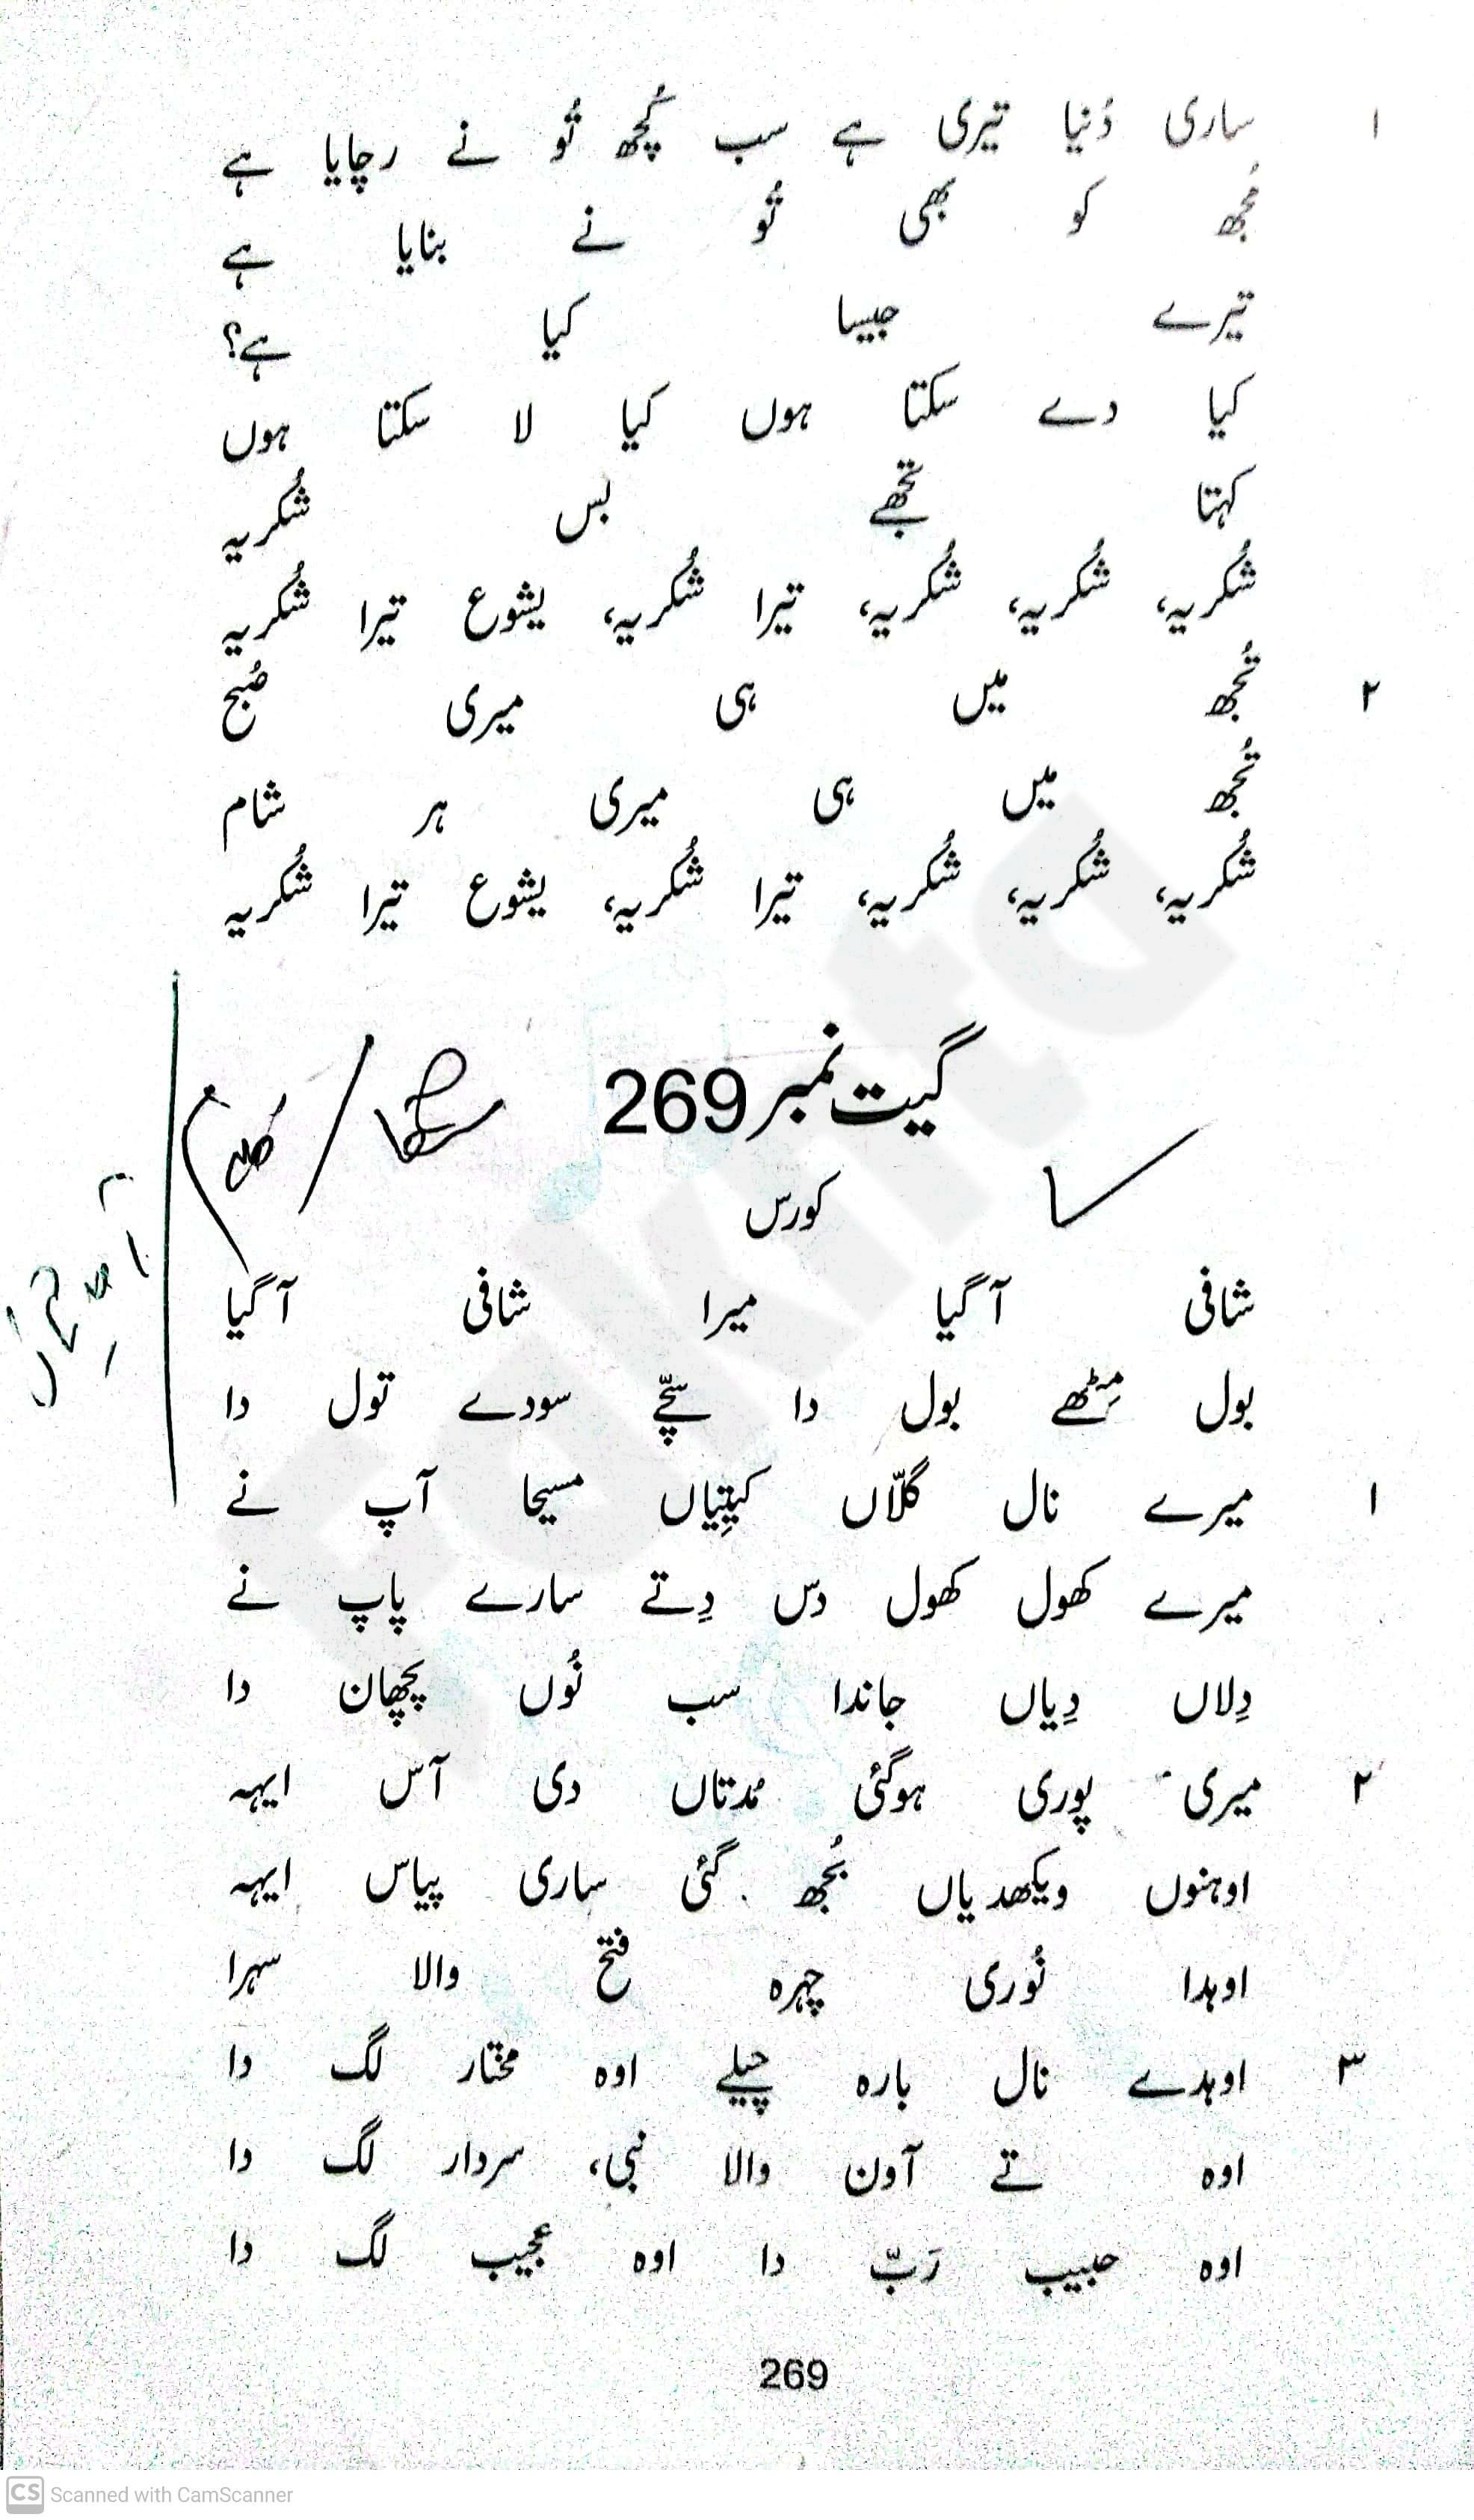 ۱ ساری دُنیا تیری ہے سب کُچھ تُو نے رچایا ہے
مُجھ کو بھی تُو نے بنایا ہے
تیرے جیسا کیا ہے؟
کیا دے سکتا ہوں کیا لا سکتا ہوں
کہتا تجھے بس شُکریہ
شُکریہ، شُکریہ، شُکریہ، تیرا شُکریہ، یشوع تیرا شُکریہ
۲ تُجھ میں ہی میری صُبح
تُجھ میں ہی میری ہر شام
شُکریہ، شُکریہ، شُکریہ، تیرا شُکریہ، یشوع تیرا شُکریہ
گیت نمبر 269
کورس
شافی آ گیا میرا شافی آ گیا
بول مِٹھے بول دا سچّے سودے تول دا
۱ میرے نال گلّاں کیتِیاں مسیحا آپ نے
میرے کھول کھول دس دِتے سارے پاپ نے
دِلاں دِیاں جاندا سب نُوں پچھان دا
۲ میری پوری ہوگئی مُدتاں دی آس ایہہ
اوہنوں ویکھدیاں بُجھ گئی ساری پیاس ایہہ
اوہدا نُوری چہرہ فتح والا سہرا
۳ اوہدے نال بارہ چیلے اوہ مختار لگ دا
اوہ تے آون والا نبی، سردار لگ دا
اوہ حبیب رَبّ دا اوہ عجیب لگ دا
269
CS Scanned with CamScanner